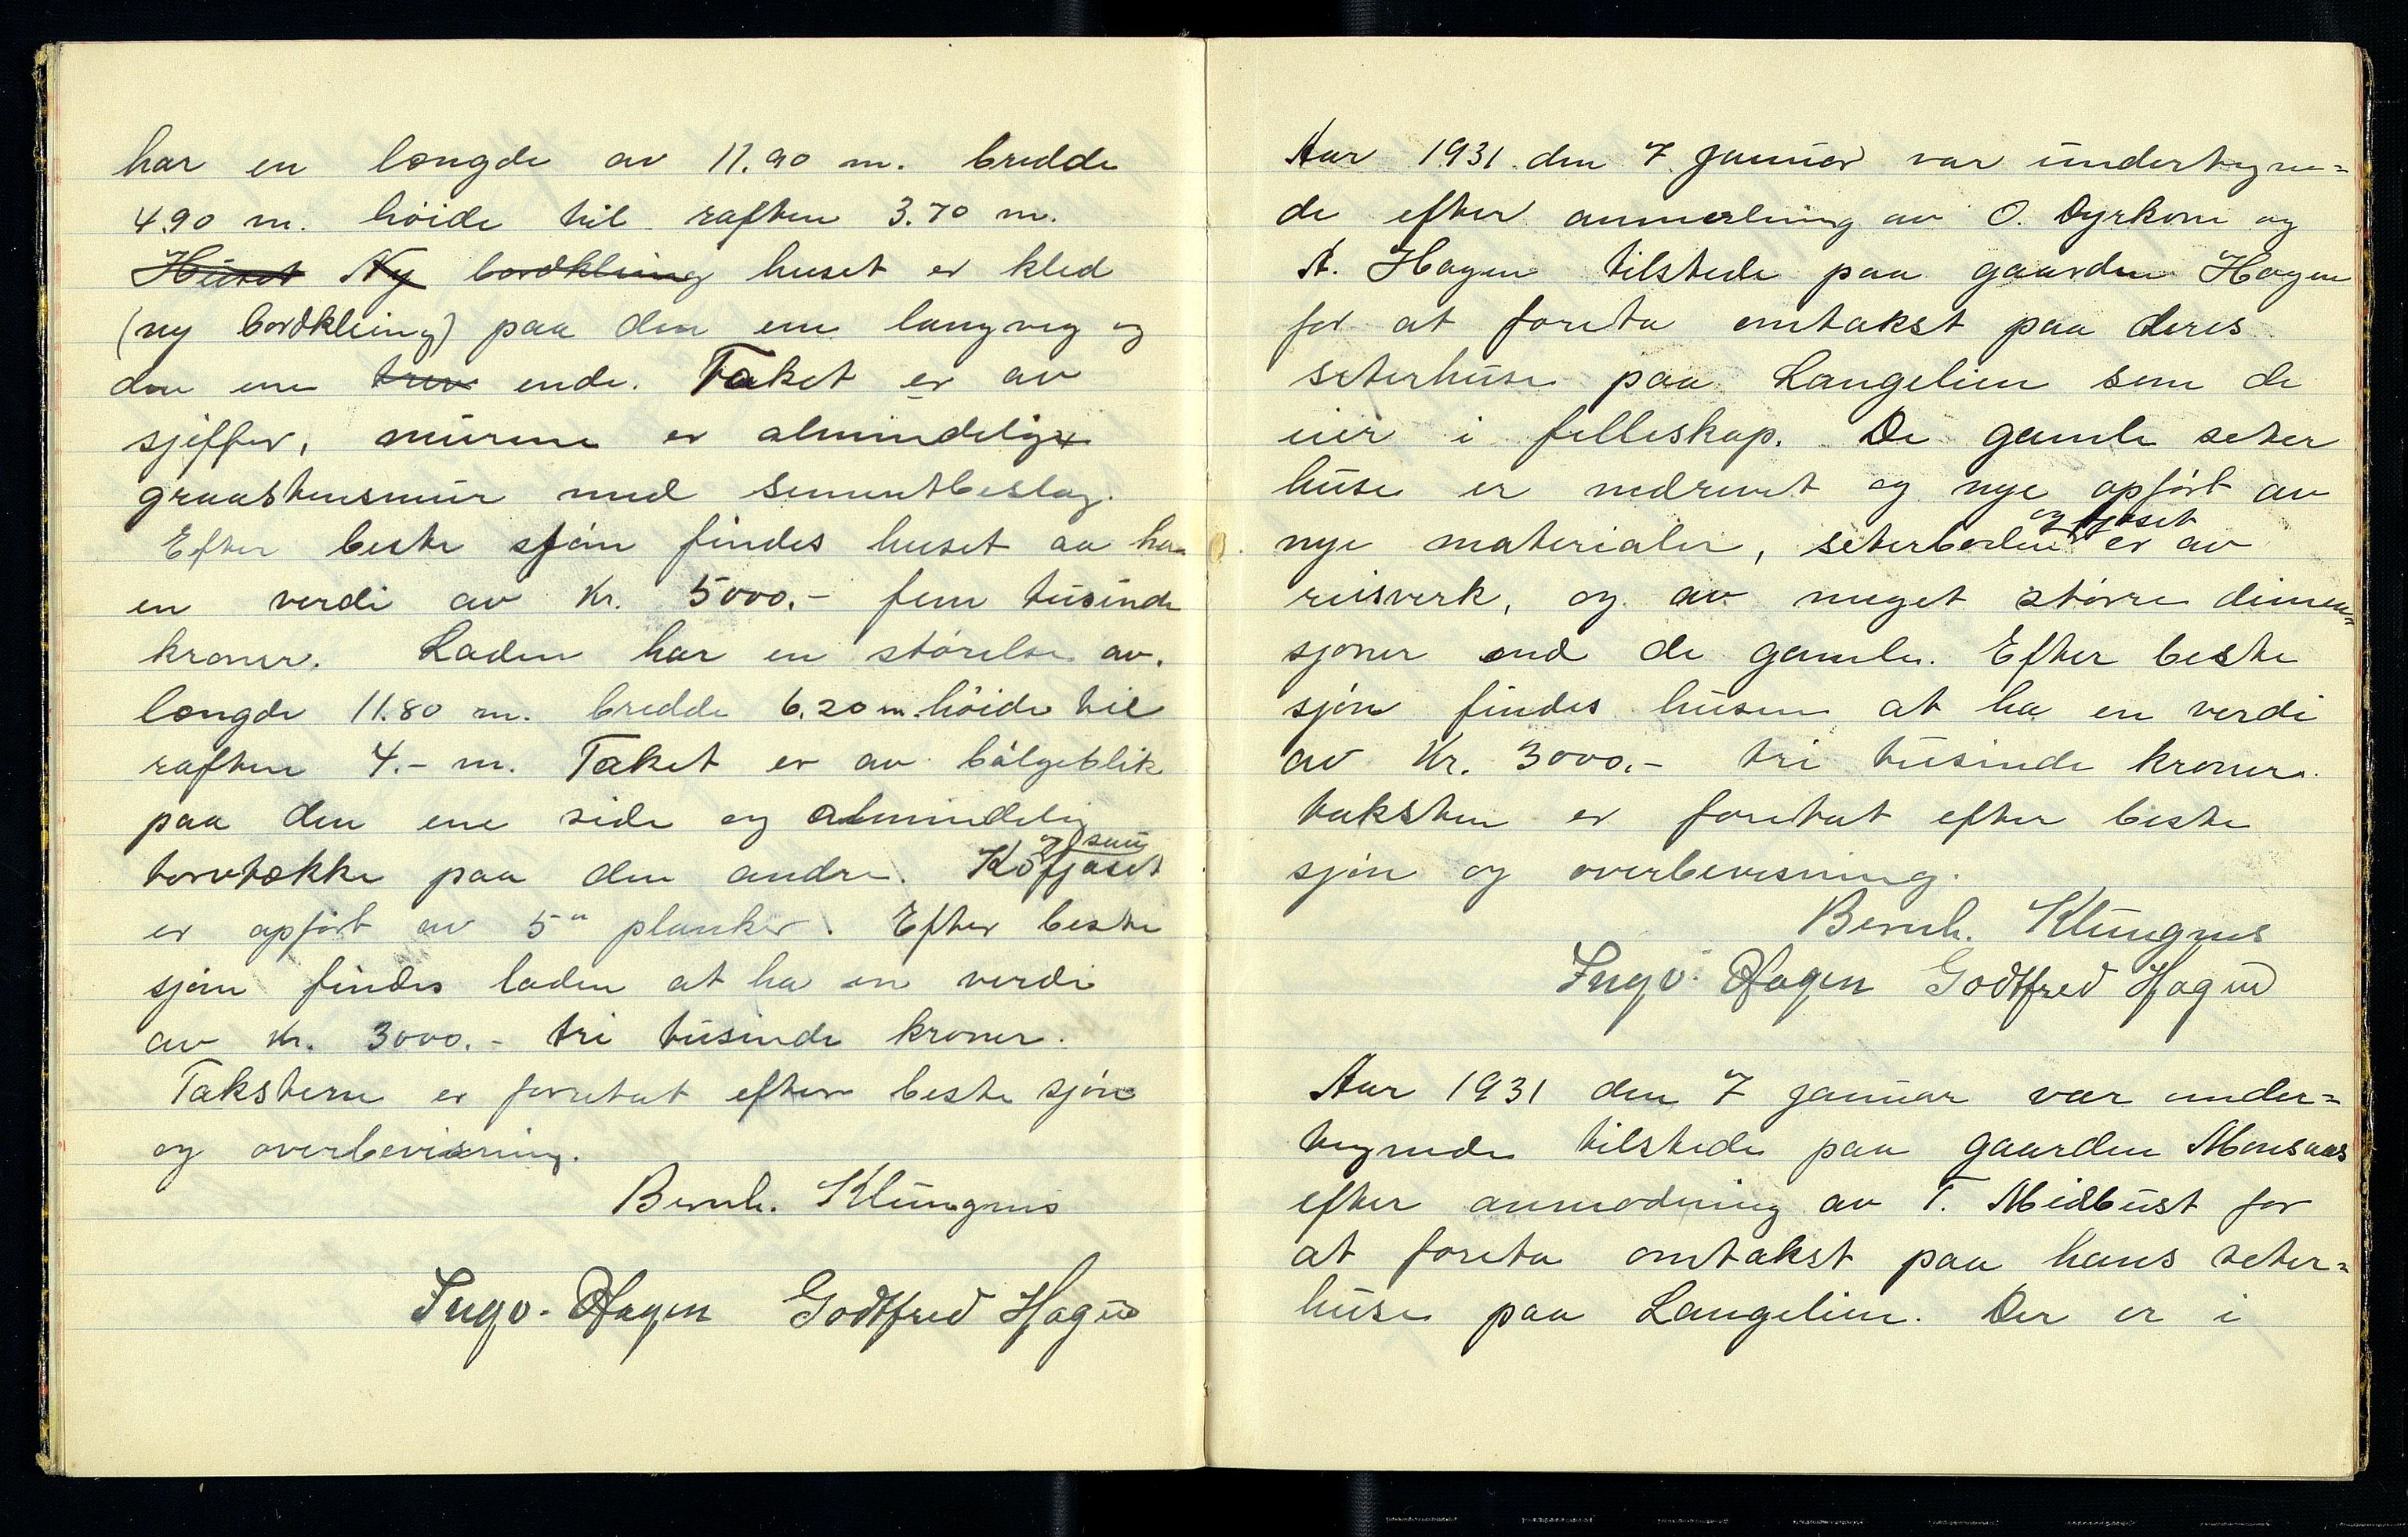 har en længde av 11.90 m. bredde
4.90 m. höide til raften 3.70 m.
Huset Ny bordkleing huset er kled
(ny bordkleing) paa den ene langveg og
den ene ende. Taket er av
sjeffer, murene er almindelig
graastensmur med sementbeslag.
Efter beste sjön findes huset aa ha
en verdi av Kr. 5000.- fem tusinde
kroner. Laden har en störelse av.
længde 11.80 m. bredde 6.20 m. höide til
raften 4.- m. Taket er av bölgeblik
paa den ene side og almindelig
og sau
torvtække paa den andre. Köfjöset
er opfört av 5" planker. Efter beste
sjön findes laden at ha en verdi
av Kr. 3000.- tri tusinde kroner.
Taksterne er foretat efter beste sjön
og overbevisning.
Bernh. Klungnes
Ingv. Hagen Godtfred Hagen
Aar 1931 den 7. januar var undertegne=
de efter anmerkning av O. Dyrkorn og
A. Hagen tilstede paa gaarden Hagen
for at foreta omtakst paa deres
seterhuse paa Langelien som de
eier i felleskap. De gamle seter
huse er nedrevet og nye opfört av
og fjöset
nye materialer, seterboden er av
reisverk, og av meget större dimen
sjoner end de gamle. Efter beste
sjön findes husene at ha en verdi
av Kr. 3000.- tri tusinde kroner.
taksten er foretat efter beste
sjön og overbevisning.
Bernh. Klungnes
Ingv. Hagen Godtfred Hagen
Aar 1931 den 7 januar var under=
tegnede tilstede paa gaarden Monsaas
efter anmodning av T. Midbust for
at foreta omtakst paa hans seter=
huse paa Langelien. Der er i